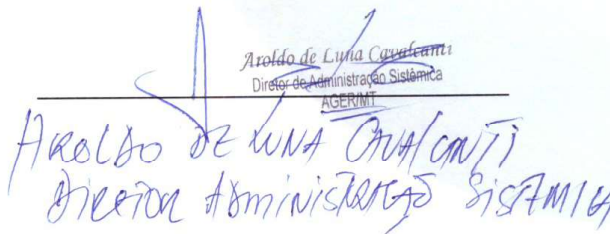 Aroldo de Luna Cavalcanti
Diretor de Administração Sistêmica
AGER/MT
AROLDO DE LUNA CAVALCANTI
DIRETOR ADMINISTRAÇÃO SISTÊMICA